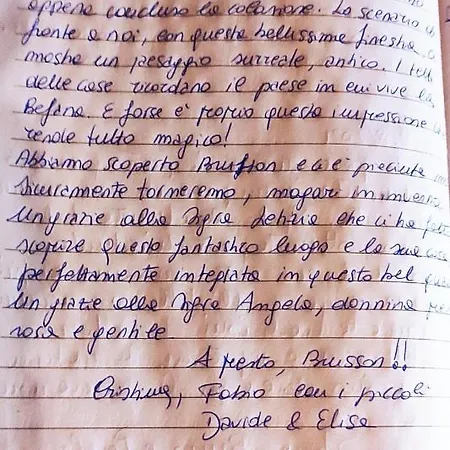 appena concluso la colazione. Lo scenario di
fronte a noi, con questa bellissima finestra
mostra un paesaggio surreale, antico. I tetti
delle case ricordano il paese in cui vive la
Befana. E forse è proprio questa impressione a
rende tutto magico!
Abbiamo scoperto Brusson e ci è piaciuta
Sicuramente torneremo, magari in inverno
Un grazie alla Sig.ra Letizia che ci ha fatto
scoprire questo fantastico luogo e la sua casa
perfettamente integrata in questo bel
Un grazie alla Sig.ra Angela, donnina
rosa e gentile
A presto, Brusson!!
Cristina, Fabio con i piccoli
Davide & Elisa